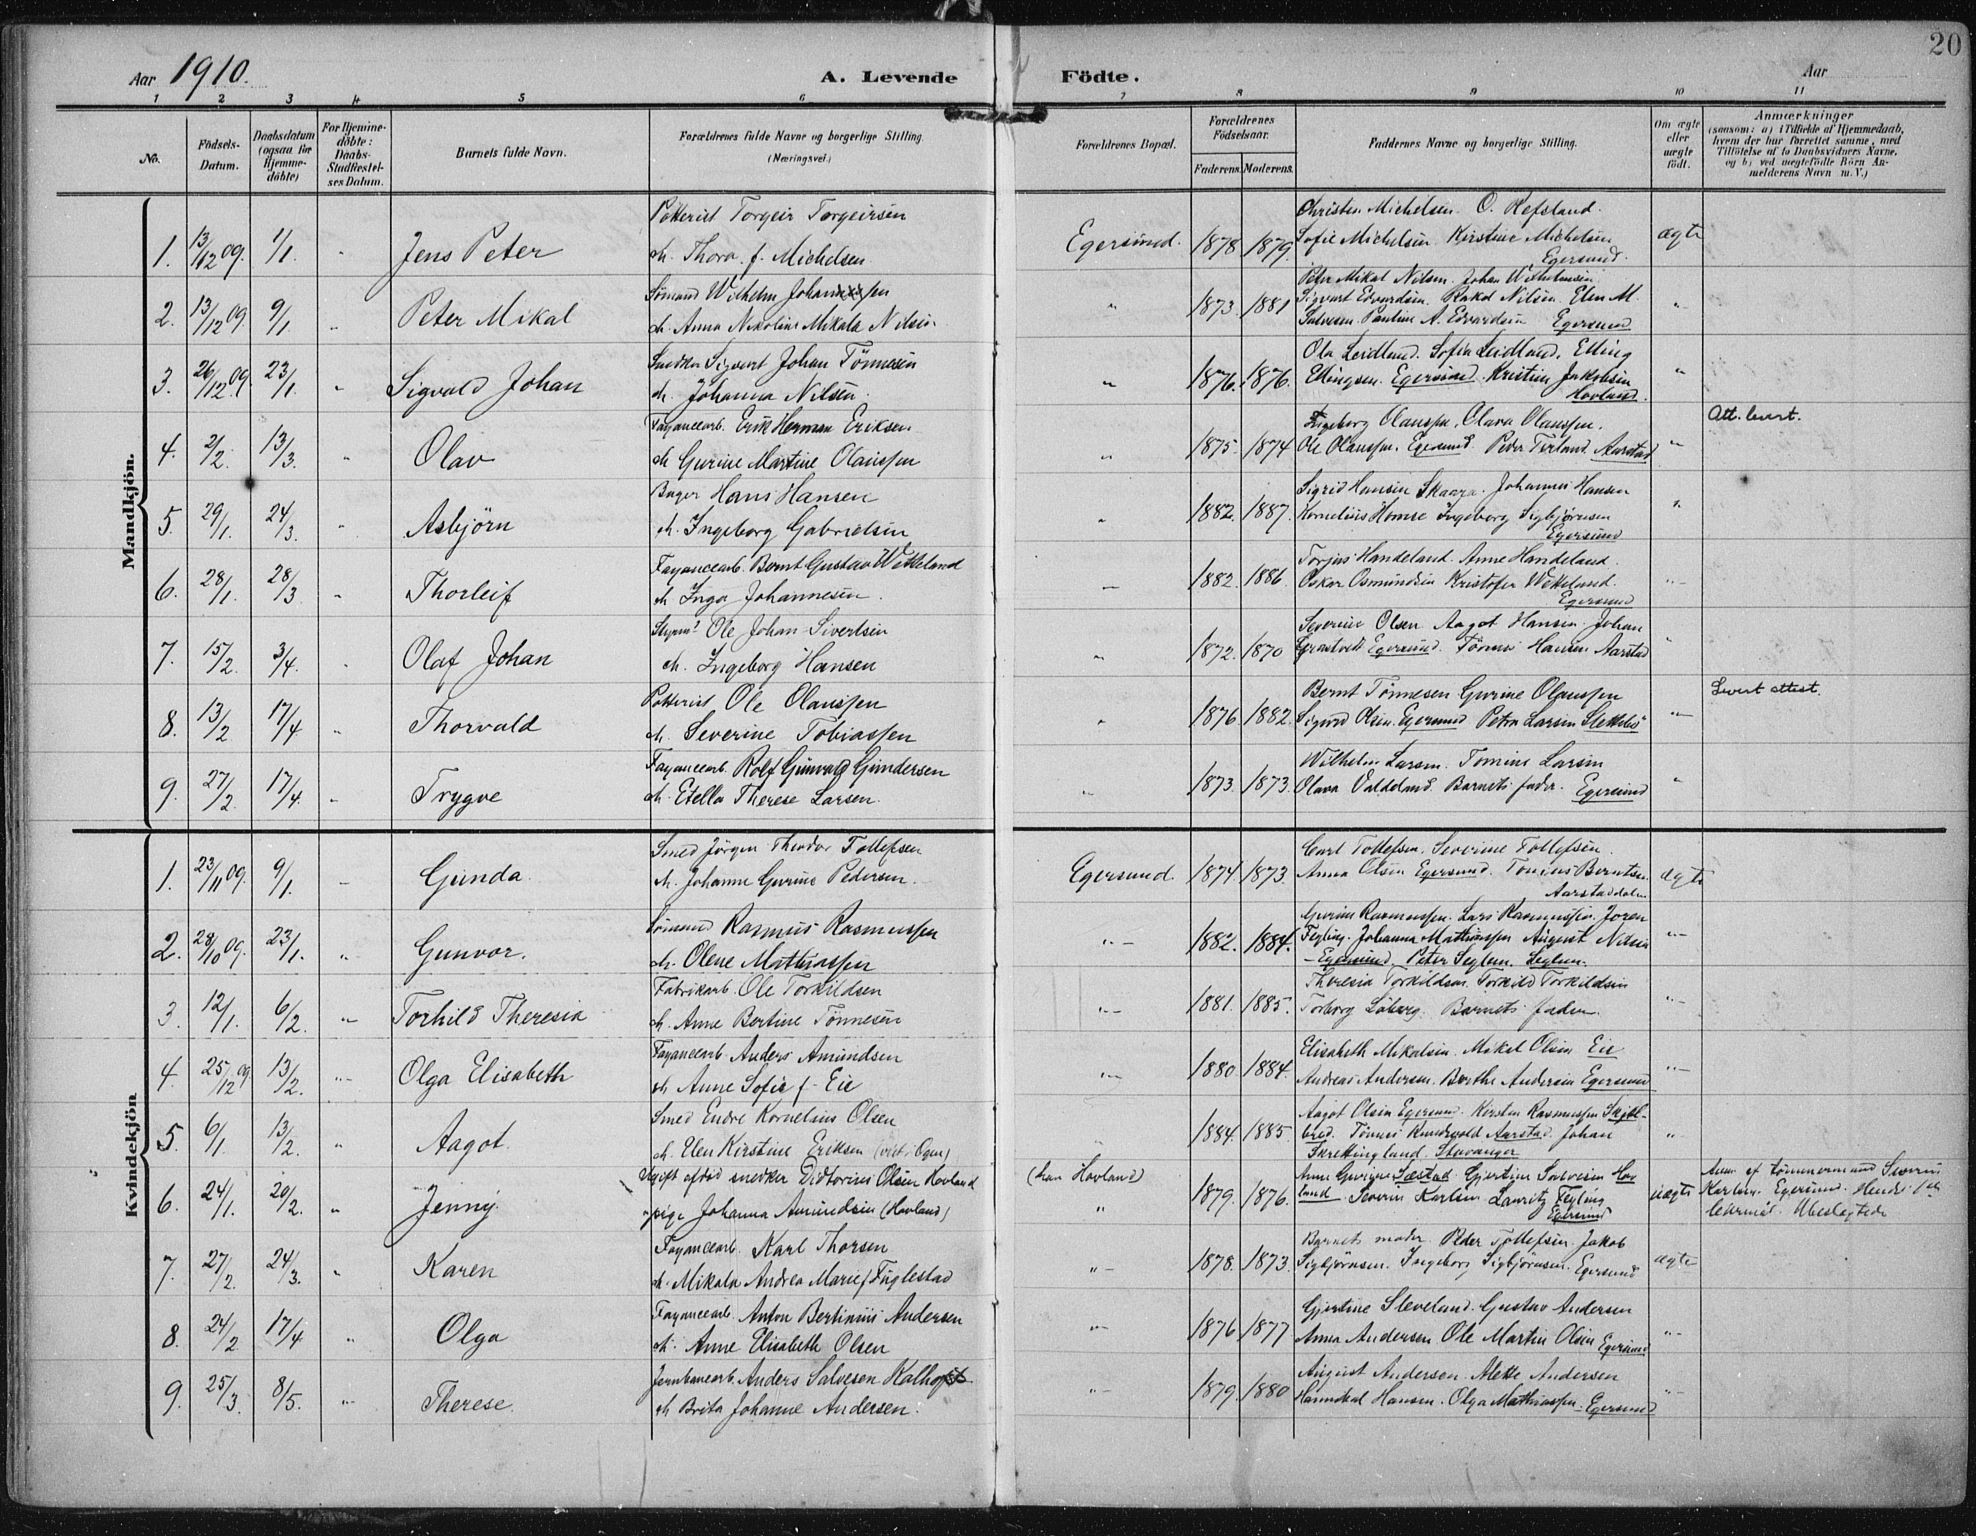 20
Aar 1910.
A. Levende Födte.
Aar
1 2 3 4 5 6 7 8 9 10 11
No.
Födsels-Datum.
Daabsdatum (ogsaa for Hjemme-döbte)
For Hjemme-döbte: Daabs-Stadfæstel-ses Datum.
Barnets fulde Navn.
Forældrenes fulde Navne og borgerlige Stilling. (Næringsvei.)
Forældrenes Bopæl.
Forældrenes Födselsaar.
Faderens. Moderens.
Faddernes Navne og borgerlige Stilling.
Om ægte eller uægte födt.
Anmærkninger
(saasom: a) i Tilfælde af Hjemmedaab, hvem der har forrettet samme, med Tilföielse af to Daabsvidners Navne, og b) ved uægtefödte Börn An-melderens Navn m. V.)
Mandkjön.
Potterist Torgeir Torgeirsen
Christen Michelsen. O. Refsland.
1. 13/12 09. 1/1 " Jens Peter
M. Thora f. Michelsen.
Egersund. 1878 1879 Sofie Michelsen Kirstine Michelsen ægte
Egersund.
Sömand Wilhelm Johannssen
Peter Mikal Nilsen. Johan Wilhelmsen
2. 13/12 09 9/1 " Peter Mikal
M. Anna Nikoline Mikala Nilsen
" 1873 1881 Sigvart Edvardsen Rakel Nilsen Elen M. "
Salvesen Pauline A. Edvardsen Egersund
Snedker Sigvart Johan Tönnesen
Ola Leidland. Sofia Leidland. Elling
3. 26/12 09 23/1 " Sigvald Johan
M. Johanna Nilsen.
" 1876. 1876. Ellingsen. Egersund. Kristine Jakobsen "
Hovland.
Fayancearb. Erik Herman Eriksen
Ingeborg Olaussen, Olava Olaussen. Att. levert.
4. 2/2. 13/3. " Olav
M Gurine Martine Olaussen
" 1875 1874 Ole Olaussen. Egersund Peder Terland Aarstad "
Bager Hans Hansen
Sigrid Hansen Skaara. Johannes Hansen
5. 29/1. 24/3. " Asbjörn
M. Ingeborg Gabrielsen
" 1882 1887. Kornelius Homse Ingeborg Sigbjörnsen "
Egersund
Fayancearb. Bernt Gustav Wetteland
Torjus Handeland. Anne Handeland.
6. 28/1. 28/3 " Thorleif
M Inga Johannesen.
" 1882. 1886 Oskar Osmundsen Kristofer Wetteland "
Egersund
Styrm. Ole Johan Sivertsen
Severine Olsen. Aagot Hansen. Johan
7. 15/2 3/4. " Olaf Johan
M. Ingeborg Hansen
" 1872. 1870 Egersund. Tönnes Hansen Aarstad "
Potterist Ole Olaussen
Bernt Tönnesen Gurine Olaussen Levert attest.
8. 13/2 17/4 " Thorvald
M. Severine Tobiassen
" 1876 1882. Sigurd Olsen. Egersund Petra Larsen Slettebö "
Fayancearb. Rolf Gunvald Gundersen
Wilhelm Larsen. Tomine Larsen
9. 27/2. 17/4. " Trygve
M. Etella Therese Larsen.
" 1873. 1873. Olava Valdeland. Barnets fader. Egersund "
Kvindekjön
Smed Jörgen Theodor Tollefsen
Carl Tollefsen. Severine Tollefsen.
1. 23/11 09. 9/1. " Gunda.
M. Johanne Gurine Pedersen.
Egersund. 1874 1873. Anna Olsen Egersund. Tönnes Berntsen ægte
Aarstaddalen
Sömand Rasmus Rasmussen
Gurine Rasmussen. Lars Rasmussen. Joren
2. 28/10 09. 23/1. " Gunvor.
M. Olene Mathiassen
"- 1882. 1884. Tegling. Johanna Mathiassen August Nilsen "-
Egersund. Peter Seglem. Seglem.
Fabrikarb. Ole Torkildsen
Theresia Torkildsen. Torkild Torkildsen
3. 12/1. 6/2. " Torhild Theresia
M. Anne Bertine Tönnesen
"- 1881. 1885. Torborg Löberg. Barnets faderen. "-
Fayancearb. Anders Amundsen
Elisabeth Mikalsen. Mikel Olsen Eie
4. 25/12 09 13/2. "- Olga Elisabeth
M Anne Sofie f. Eie
"- 1880 1884. Andreas Andersen. Berthe Andersen Egersund "-
Smed Endre Kornelius Olsen
Aagot Olsen Egersund. Kirsten Rasmussen Skjel-
5. 6/1 13/2 " Aagot.
M. Elen Kirstine Eriksen
" 1884. 1885. bred. Tönnes Rundvold Aarstad. Johan "
Skrettingland. Stavanger
Ugift afdöd snedker Didtorius Olsen Hovland
(han Hovland) Anne Gurine Sæstad Gjertine Salvesen Hov-
6. 24/1. 20/2. " Jenny.
pige Johanna Amundsen (Hovland)
" 1879. 1876. land. Severin Karlsen. Lauritz Tegling uægte
Egersund
Anm. af tömmermand Severin
Karlsen. Egersund.
Ubeslægtede
Fayancearb. Karl Thorsen
Barnets moder. Peder Tollefsen. Jakob
7. 27/2. 24/3. " Karen
M. Mikala Andrea Marie f. Fuglestad
"- 1878. 1873. Sigbjörnsen. Ingeborg Sigbjörnsen. Egersund ægte
Fayancearb. Anton Bertinius Andersen
Gjertine Sleveland. Gustav Andersen
8. 24/2 17/4 " Olga
M. Anne Elisabeth Olsen
"- 1876 1877 Anna Andersen Ole Martin Olsen Egersund "-
Jernbanearb. Anders Salvesen Kalhof
August Andersen. Mette Andersen
9. 25/3. 8/5. "- Therese.
M Brita Johanne Andersen.
"- 1879. 1880 Hannekal Hansen. Olga Mathiassen. Egersund "-